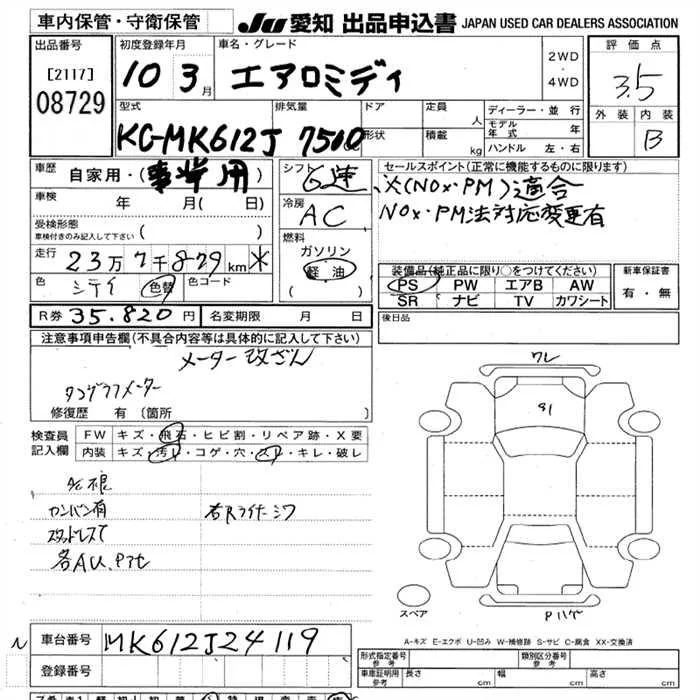 車内保管・守衛保管
JU 愛知 出品申込書 JAPAN USED CAR DEALERS ASSOCIATION
出品番号
[2117]
08729
初度登録年月
10 3月
車名・グレード
エアロミディ
2WD
・
4WD
評価点
3.5
外装 内装
B
型式
KC-MK612J
排気量
7500cc
ドア
形状
定員 人
積載 kg
ディーラー・並行
モデル年式 年
ハンドル 左・右
車歴
自家用・(事業用)
車検 年 月(日)
受検形態
車検付きのみ記入して下さい ( )
走行
23万7千879km
色
シテイ 色替
色コード
R券 35.820円
名変期限 月 日
シフト
6速
冷房
AC
燃料
ガソリン
軽油
( )
セールスポイント(正常に機能するものに限ります)
※(NOx・PM)適合
NOx・PM法対応変更有
装備品(純正品に限り○をつけてください)
PS PW エアB AW
SR ナビ TV カワシート
新車保証書
有・無
後日品
注意事項申告欄(不具合内容等は具体的に記入して下さい)
メーター改ざん
タコグラフメーター
修復歴 有 〔箇所
検査員
記入欄
FW キズ・飛石・ヒビ割・リペア跡・X要
内装 キズ・汚レ・コゲ・穴・スレ・キレ・破レ
カンバン有
スタッドレスT
各AU、Pアセ
右Rライナーシワ
ワレ
S1
スペア
A-キズ E-エクボ U-凹み W-補修跡 S-サビ C-腐食 XX-交換済
車台番号
MK612J24119
登録番号
形式指定番号
参考
類別区分番号
参考
車庫証明用
参考
長さ cm
幅 cm
高さ cm